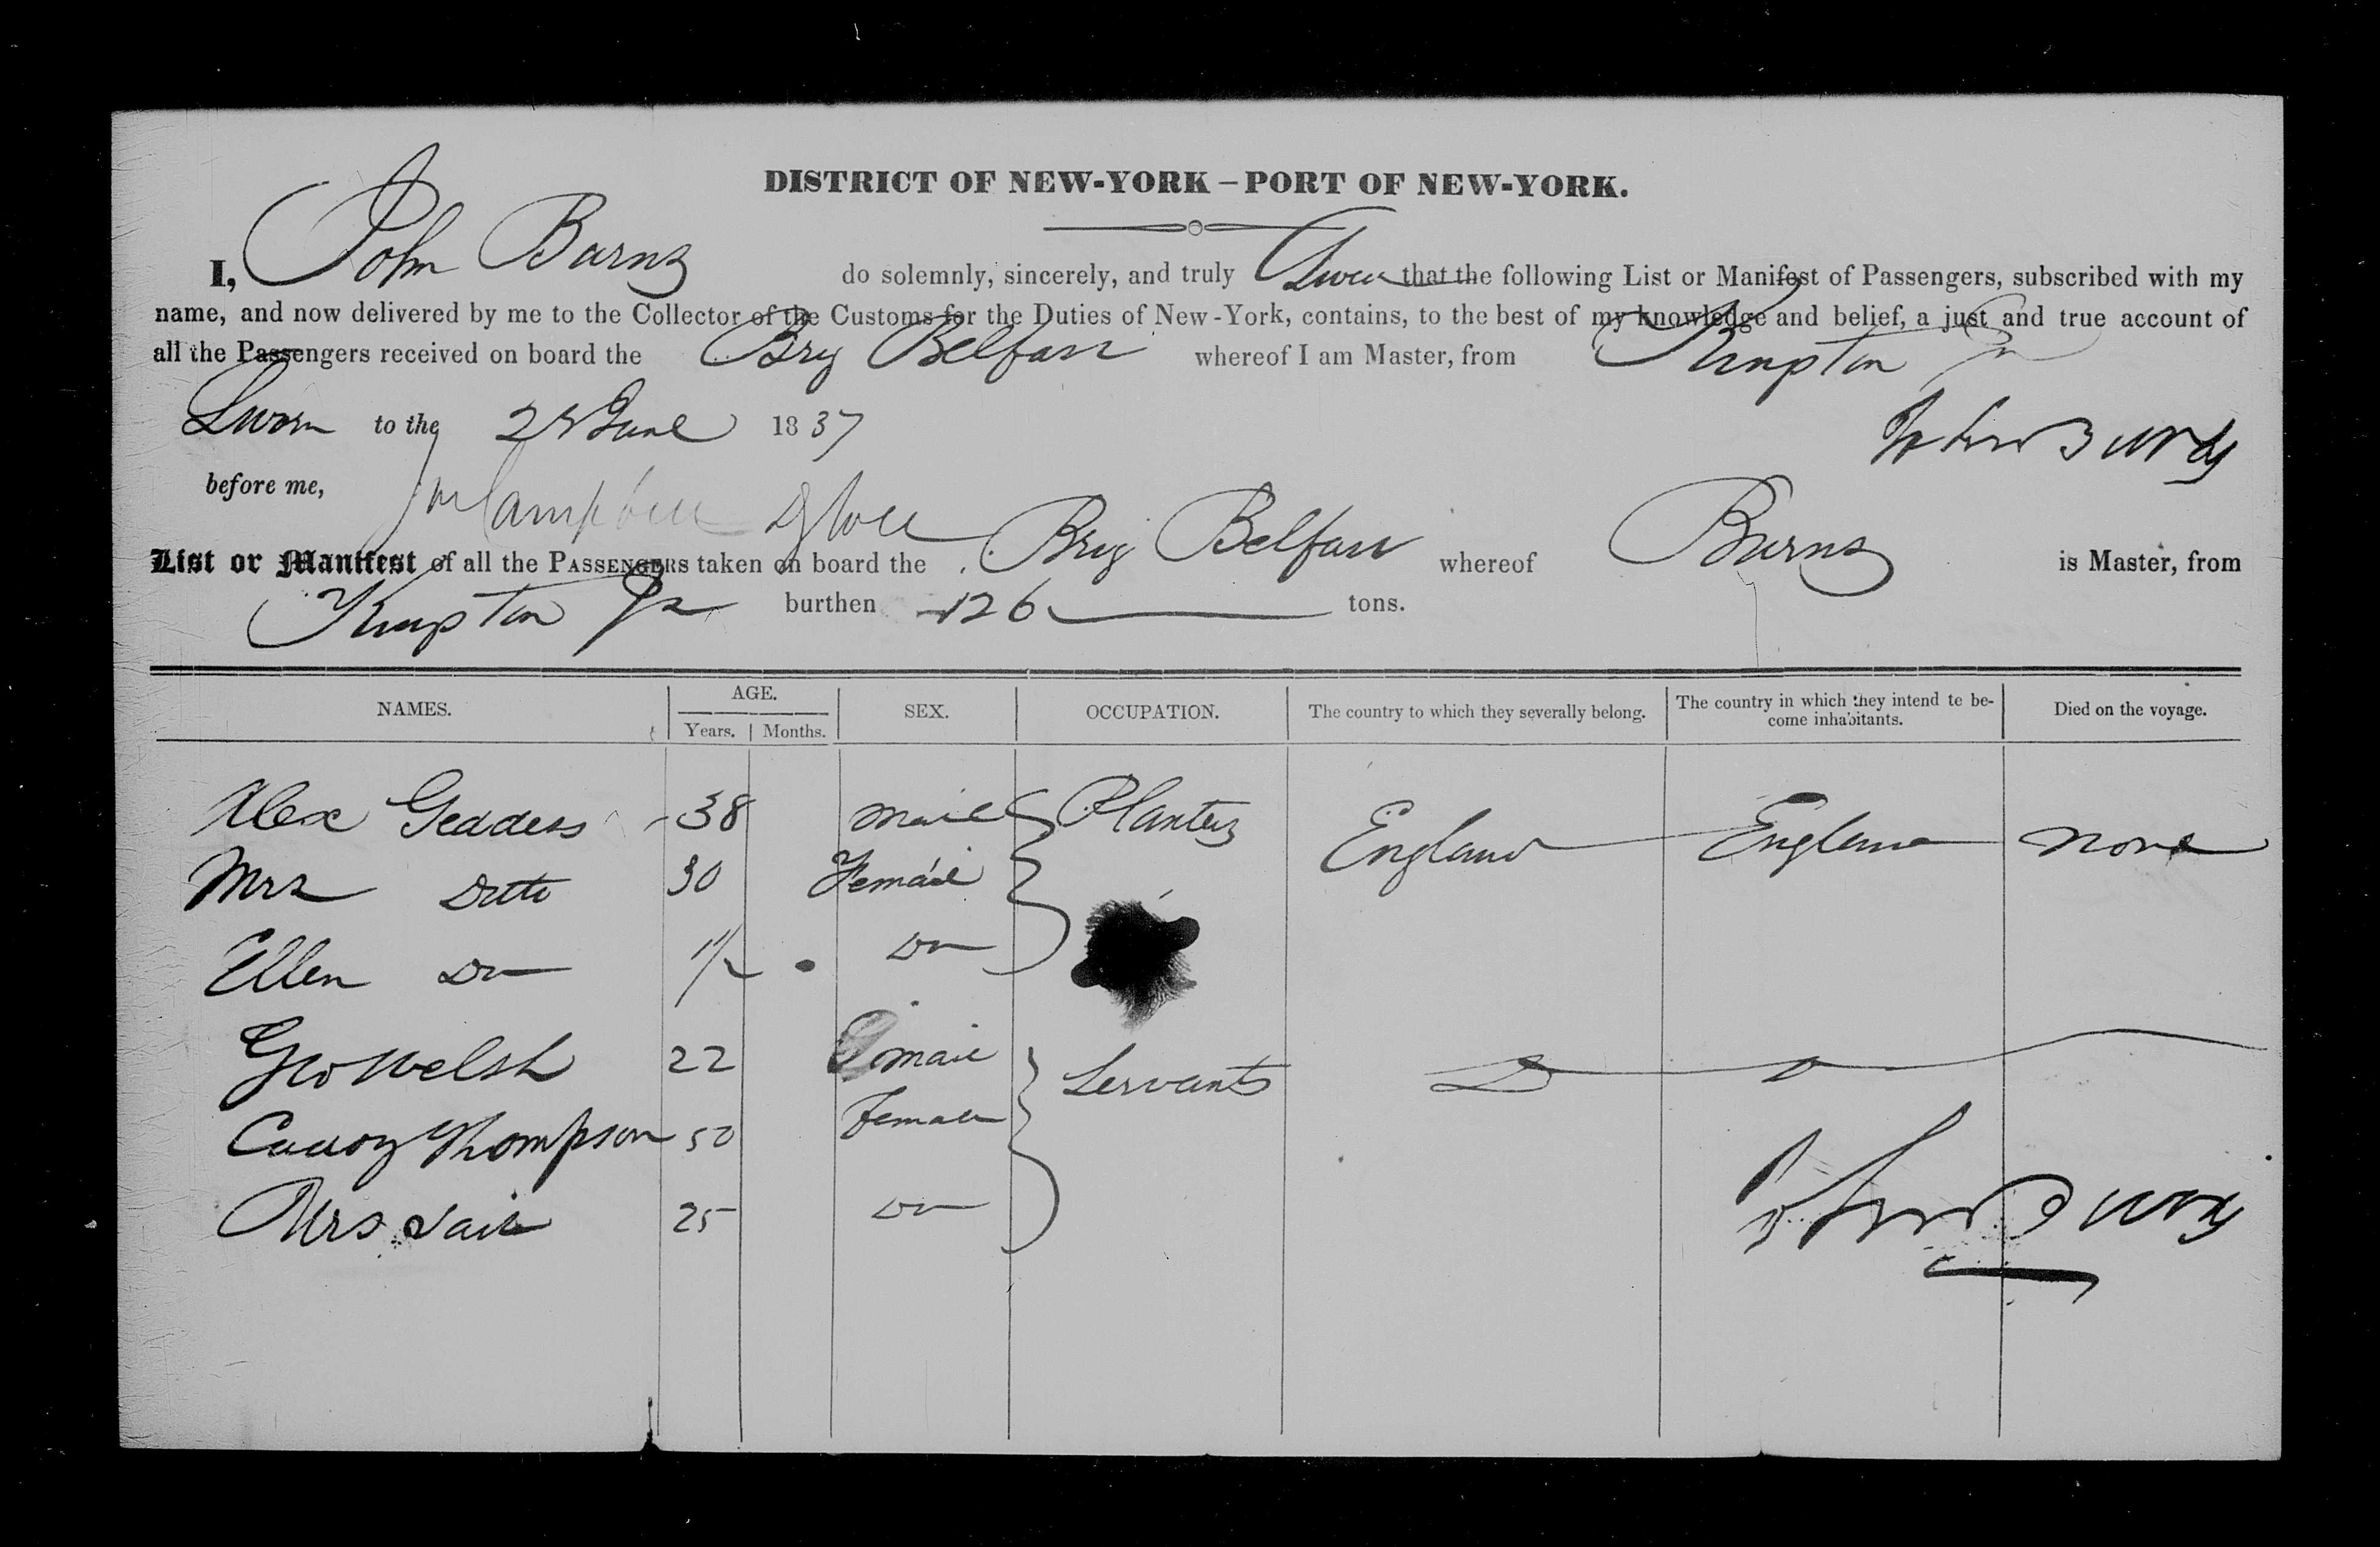 DISTRICT OF NEW-YORK – PORT OF NEW-YORK.
I, John Burns do solemnly, sincerely, and truly Swear that the following List or Manifest of Passengers, subscribed with my
name, and now delivered by me to the Collector of the Customs for the Duties of New-York, contains, to the best of my knowledge and belief, a just and true account of
all the Passengers received on board the Brig Belfast whereof I am Master, from Kingston Ja
Sworn to the 28 June 1837
John Burns
before me, Campbell
List or Manifest of all the PASSENGERS taken on board the Brig Belfast whereof Burns is Master, from
Kingston Ja burthen 126 tons.
NAMES. AGE. Years. Months. SEX. OCCUPATION. The country to which they severally belong. The country in which they intend to become inhabitants. Died on the voyage.
Alex Geddess 38 male Planter England England none
Mrs Ditto 30 Female
Ellen Do 1 1/2 Do
Geo Welsh 22 male Servants D D
Thompson 50 Female
Mrs 25 Do
John Burns